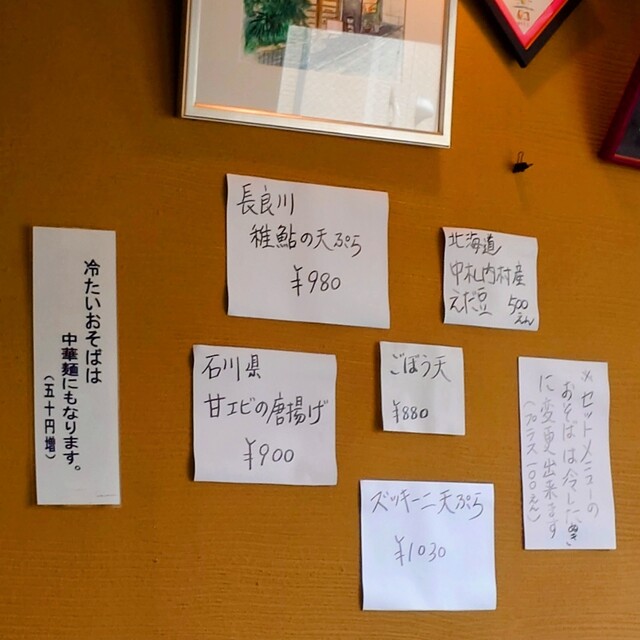 冷たいおそばは
中華麺にもなります。
(五十円増)
長良川
稚鮎の天ぷら
¥980
北海道
中札内村産
えだ豆 500えん
石川県
甘エビの唐揚げ
¥900
ごぼう天
¥880
ズッキーニ天ぷら
¥1030
※セットメニューの
おそばは冷したぬき
に変更出来ます
(プラス100えん)